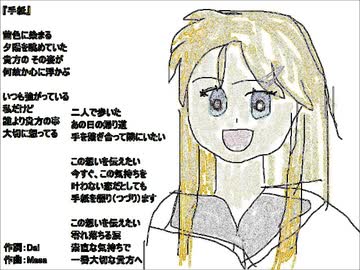 『手紙』
茜色に染まる
夕陽を眺めていた
貴方の その姿が
何故か心に浮かぶ
いつも強がっている
私だけど
誰より貴方の事
大切に想ってる
二人で歩いた
あの日の帰り道
手を繋ぎ合って隣にいたい
この想いを伝えたい
今すぐ、この気持ちを
叶わない恋だとしても
手紙を綴り(つづり)ます
この想いを伝えたい
零れ落ちる涙
素直な気持ちで
一番大切な貴方へ
作詞：Dai
作曲：Masa